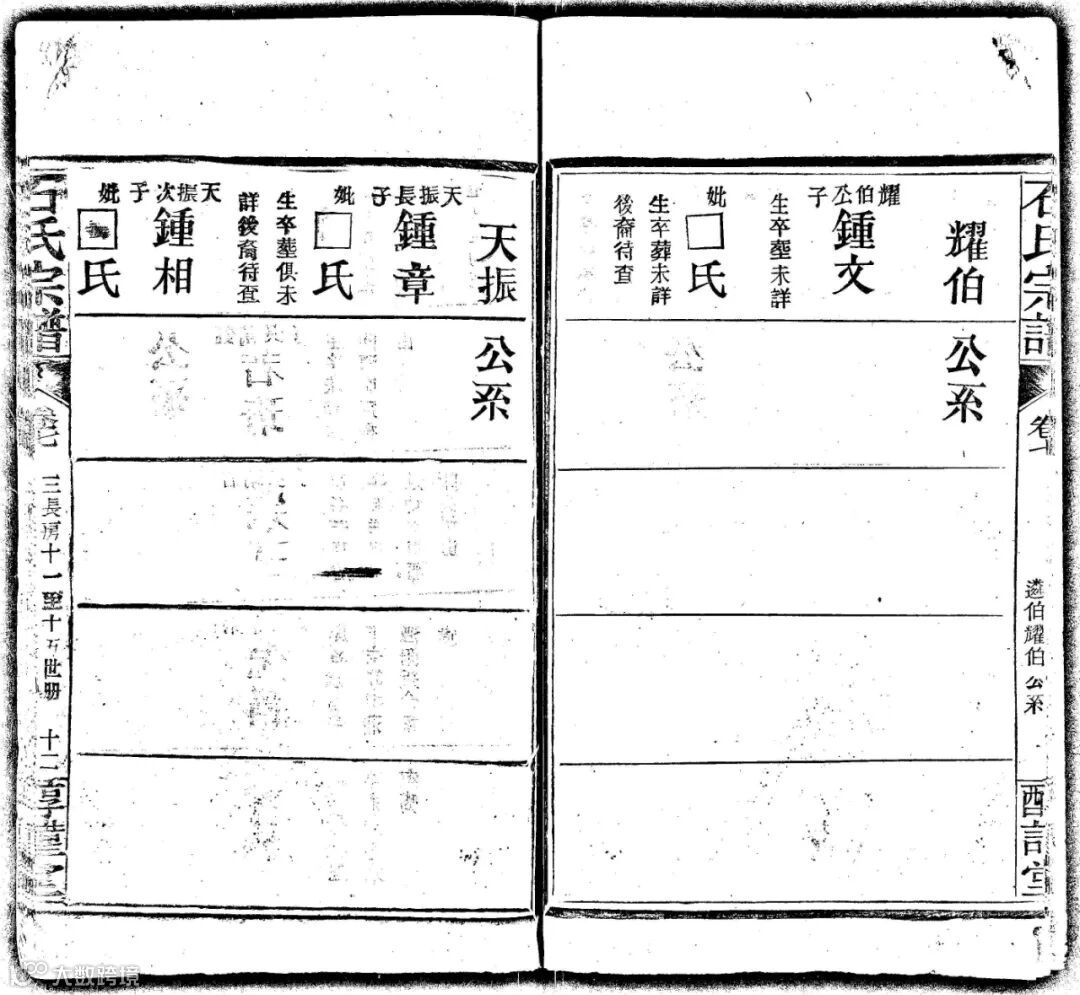 石氏宗譜
卷七
遴伯耀伯公系
耀伯公系
耀伯公子
鍾文
生卒塟未詳
妣□氏
生卒葬未詳
後裔待查
天振公系
天振長子
鍾章
妣□氏
生卒塟俱未
詳後裔待查
天振次子
鍾相
妣□氏
石氏宗譜
卷七
三長房十一至十五世册
十二
大数跨境